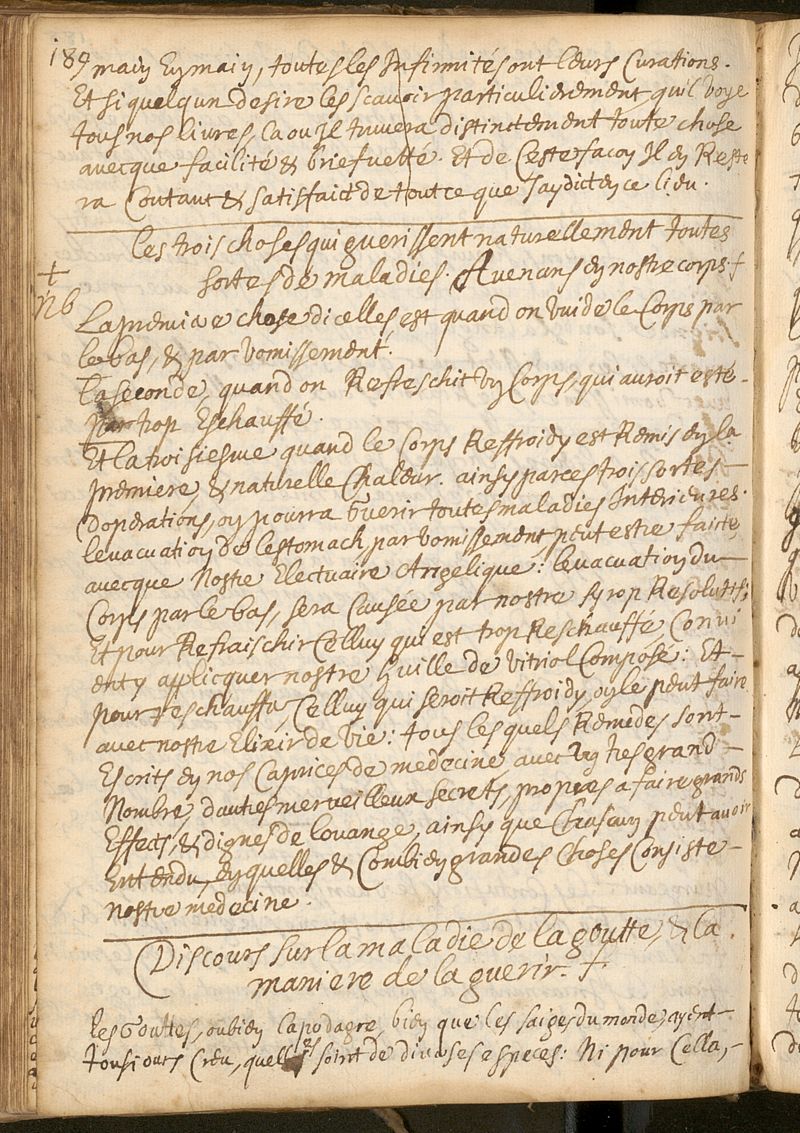 189
main en main, toutes les Infirmités ont leurs Curations.
Et si quelqun desire les scavoir particulierement qu'il voye
tous nos livres, la ou Jl truvera distinctement toute chose
avecque facilité & briefvetté. Et de Ceste facon Jl en Reste
ra Contant & satisfaict de tout ce que J'ay dict en ce lieu.
Les trois choses qui guerissent naturellement toutes
sortes de maladies. Avenans en nostre corps.
+
nb
La premiere chose dicelles est quand on vuide le Corps par
le bas, & par vomissement.
La seconde, quand on Refreschit un Corps, qui auroit esté
par trop Eschauffé.
Et la troisiesme quand le Corps Reffroidy est Remis en la
premiere, & naturelle Chaleur. ainsy par ces trois sortes
doperations, on pourra Guerir toutes maladies Interieures.
levacuation de lestomach par vomissement peut estre faicte,
avecque Nostre Electuaire Angelique: levacuation du
Corps par le bas, sera Causée par nostre syrop Resolutif;
Et pour Refraischir Celluy qui est trop Reschauffé, Convi
ent y applicquer nostre huille de vitriol Composé: Et
pour reschauffer Celluy qui seroit Reffroidy, on le peut faire
avec nostre Elixir de vie: tous les quels Remedes sont
Escrits en nos Caprices de medecine, avec ung tres grand
Nombre, dautres merveilleux secrets, propres a faire grands
Effects, & dignes de louange, ainsy que Chascun peut avoir
Entendu, en quelles & Combien grandes Choses Consiste
nostre medecine.
Discours sur la maladie de la goutte, & la
maniere de la guerir. +
Les Gouttes, ou bien la podagre, bien que les saiges du monde, ayent
tousiours Creu, quelles soint de diverses especes: Ni pour Cella,